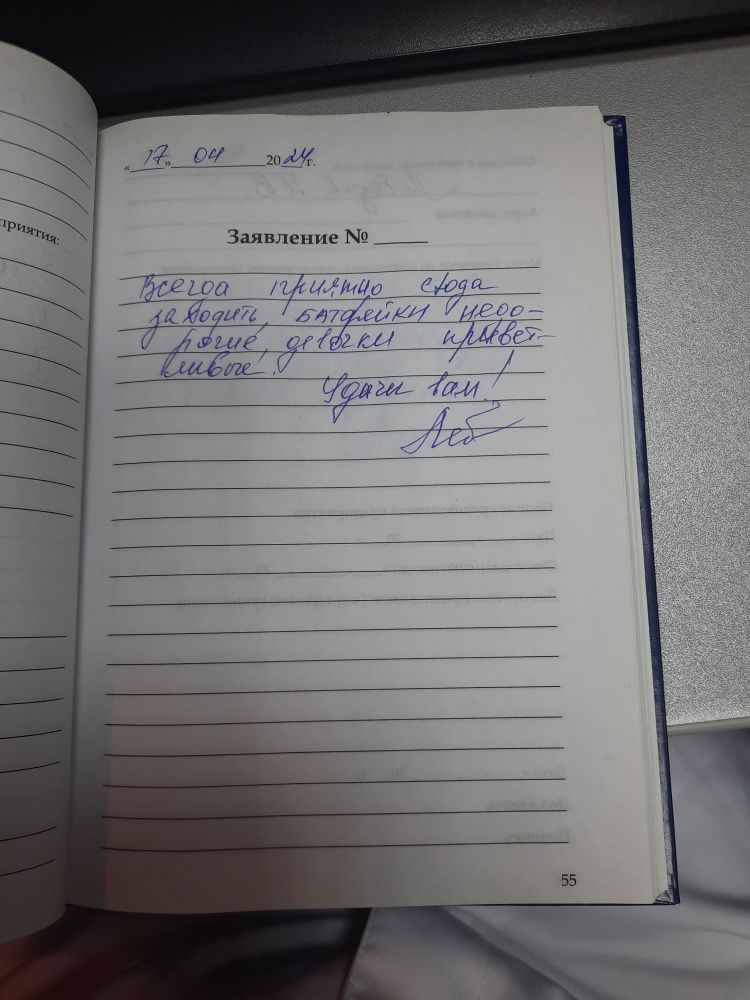 приятия:
«17» 04 2024г.
Заявление №
Всегда приятно сюда
заходить, батарейки недо-
рогие, девочки привет-
ливые.
Удачи вам!
Леб
55